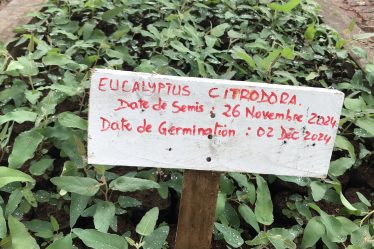 EUCALYPTUS CITRODORA.
Date de Semis : 26 Novembre 2024
Date de Germination : 02 Déc 2024